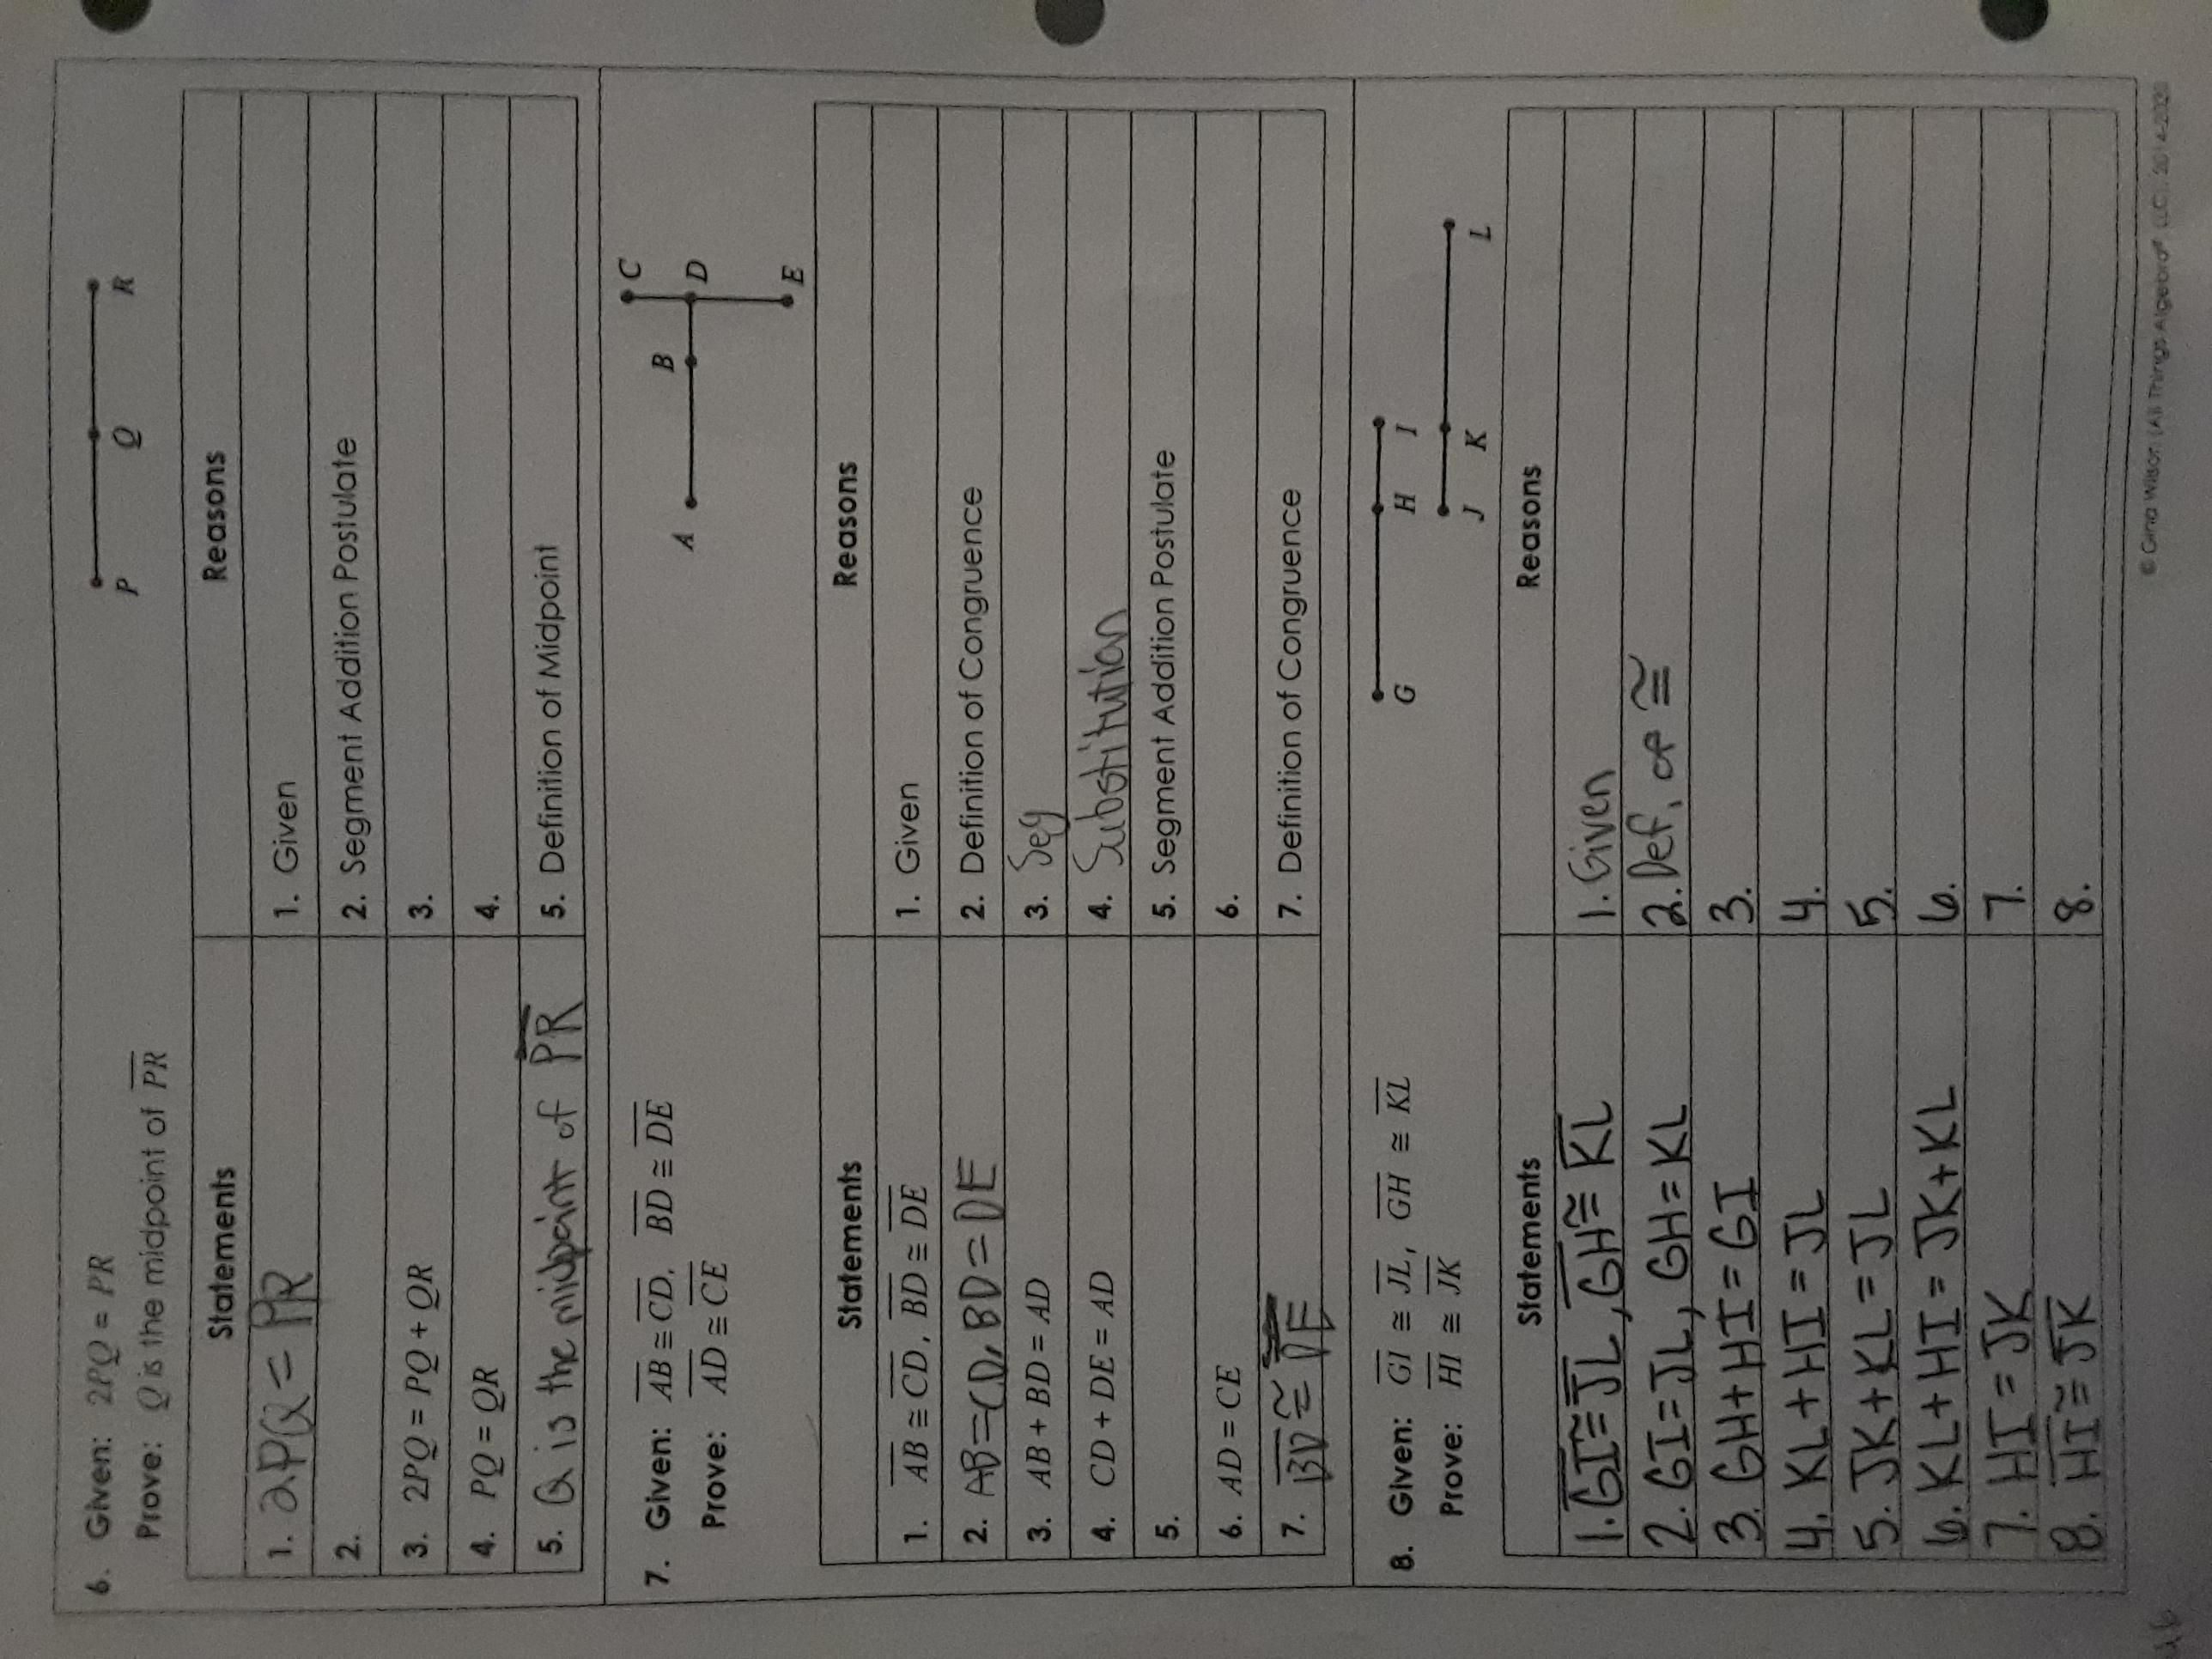 6. Given: 2PQ = PR
Prove: Q is the midpoint of PR
P Q R
Statements Reasons
1. 2PQ = PR 1. Given
2. 2. Segment Addition Postulate
3. 2PQ = PQ + QR 3.
4. PQ = QR 4.
5. Q is the midpoint of PR 5. Definition of Midpoint
7. Given: AB ≅ CD, BD ≅ DE
Prove: AD ≅ CE
A B C D E
Statements Reasons
1. AB ≅ CD, BD ≅ DE 1. Given
2. AB=CD, BD=DE 2. Definition of Congruence
3. AB + BD = AD 3. Seg
4. CD + DE = AD 4. Substitution
5. 5. Segment Addition Postulate
6. AD = CE 6.
7. BD ≅ DE 7. Definition of Congruence
8. Given: GI ≅ JL, GH ≅ KL
Prove: HI ≅ JK
G H I
J K L
Statements Reasons
1. GI ≅ JL, GH ≅ KL 1. Given
2. GI = JL, GH = KL 2. Def. of ≅
3. GH + HI = GI 3.
4. KL + HI = JL 4.
5. JK + KL = JL 5.
6. KL + HI = JK + KL 6.
7. HI = JK 7.
8. HI ≅ JK 8.
© Gina Wilson (All Things Algebra®, LLC), 2014-2020